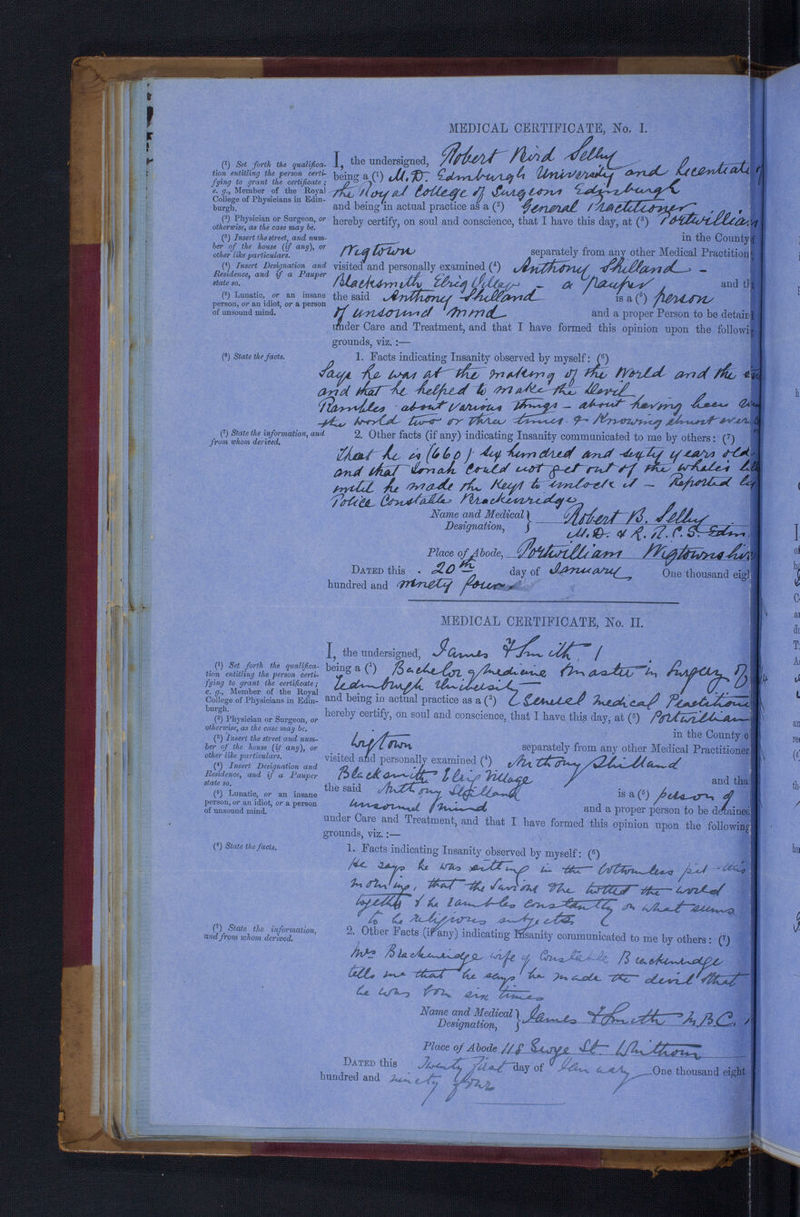 MEDICAL CERTIFICATE, No. I.
(¹) Set forth the qualifica-
tion entitling the person certi-
fying to grant the certificate;
e. g., Member of the Royal
College of Physicians in Edin-
burgh.
(²) Physician or Surgeon, or
otherwise, as the case may be.
(³) Insert the street, and num-
ber of the house (if any), or
other like particulars.
(⁴) Insert Designation and
Residence, and if a Pauper
state so.
(⁵) Lunatic, or an insane
person, or an idiot, or a person
of unsound mind.
(⁶) State the facts.
(⁷) State the information, and
from whom derived.
I, the undersigned, Robert Selby
being a (¹) M.D. Edinburgh University and Licentiate
The Royal College of Surgeons Edinburgh
and being in actual practice as a (²) General Practitioner
hereby certify, on soul and conscience, that I have this day, at (³) Portwilliam
in the County
Wigtown separately from any other Medical Practition
visited and personally examined (⁴) Anthony Shilland -
Blacksmith Elrig Village - a pauper and th
the said Anthony Shilland is a (⁵) person
of unsound mind and a proper Person to be detain
under Care and Treatment, and that I have formed this opinion upon the followi
grounds, viz.:—
1. Facts indicating Insanity observed by myself: (⁶)
Says he was at the making of the World and the
and that he helped to make the Devil
Rambles about various things - about having been
the world two or three times & Knowing almost
2. Other facts (if any) indicating Insanity communicated to me by others: (⁷)
That he is (660) six hundred and sixty years old
and that Jonah could not get out of the whales
until he made the Keys to unlock it - Reported by
Police Constable Brackenridge
Name and Medical Designation, Robert B. Selby
M.D. & L.R.C.S. Edin
Place of Abode, Portwilliam Wigtownshir
DATED this 20th day of January One thousand eigh
hundred and ninety four
MEDICAL CERTIFICATE, No. II.
(¹) Set forth the qualifica-
tion entitling the person certi-
fying to grant the certificate;
e. g., Member of the Royal
College of Physicians in Edin-
burgh.
(²) Physician or Surgeon, or
otherwise, as the case may be.
(³) Insert the street and num-
ber of the house (if any), or
other like particulars.
(⁴) Insert Designation and
Residence, and if a Pauper
state so.
(⁵) Lunatic, or an insane
person, or an idiot, or a person
of unsound mind.
(⁶) State the facts.
(⁷) State the information,
and from whom derived.
I, the undersigned, James F Smith
being a (¹) Bachelor of Medicine & Master in Surgery of
Edinburgh University
and being in actual practice as a (²) General Medical Practitione
hereby certify, on soul and conscience, that I have this day, at (³) Portwilliam
in the County o
Wigtown separately from any other Medical Practitioner
visited and personally examined (⁴) Anthony Shilland
Blacksmith Elrig Village and tha
the said Anthony Shilland is a (⁵) person of
unsound mind and a proper person to be detained
under Care and Treatment, and that I have formed this opinion upon the following
grounds, viz.:—
1. Facts indicating Insanity observed by myself: (⁶)
He says he was sitting in the bottomless pit this
morning, that the Saviour & he the world
together & he rambles constantly on what seems
to be religious subjects.
2. Other Facts (if any) indicating Insanity communicated to me by others: (⁷)
Mrs Brackenridge wife of Constable Brackenridge
tells me that he says he made the devil & that
he was born six times
Name and Medical Designation, James F Smith M.B.C.
Place of Abode 118 George St Whithorn
DATED this Twenty first day of January One thousand eight
hundred and ninety four